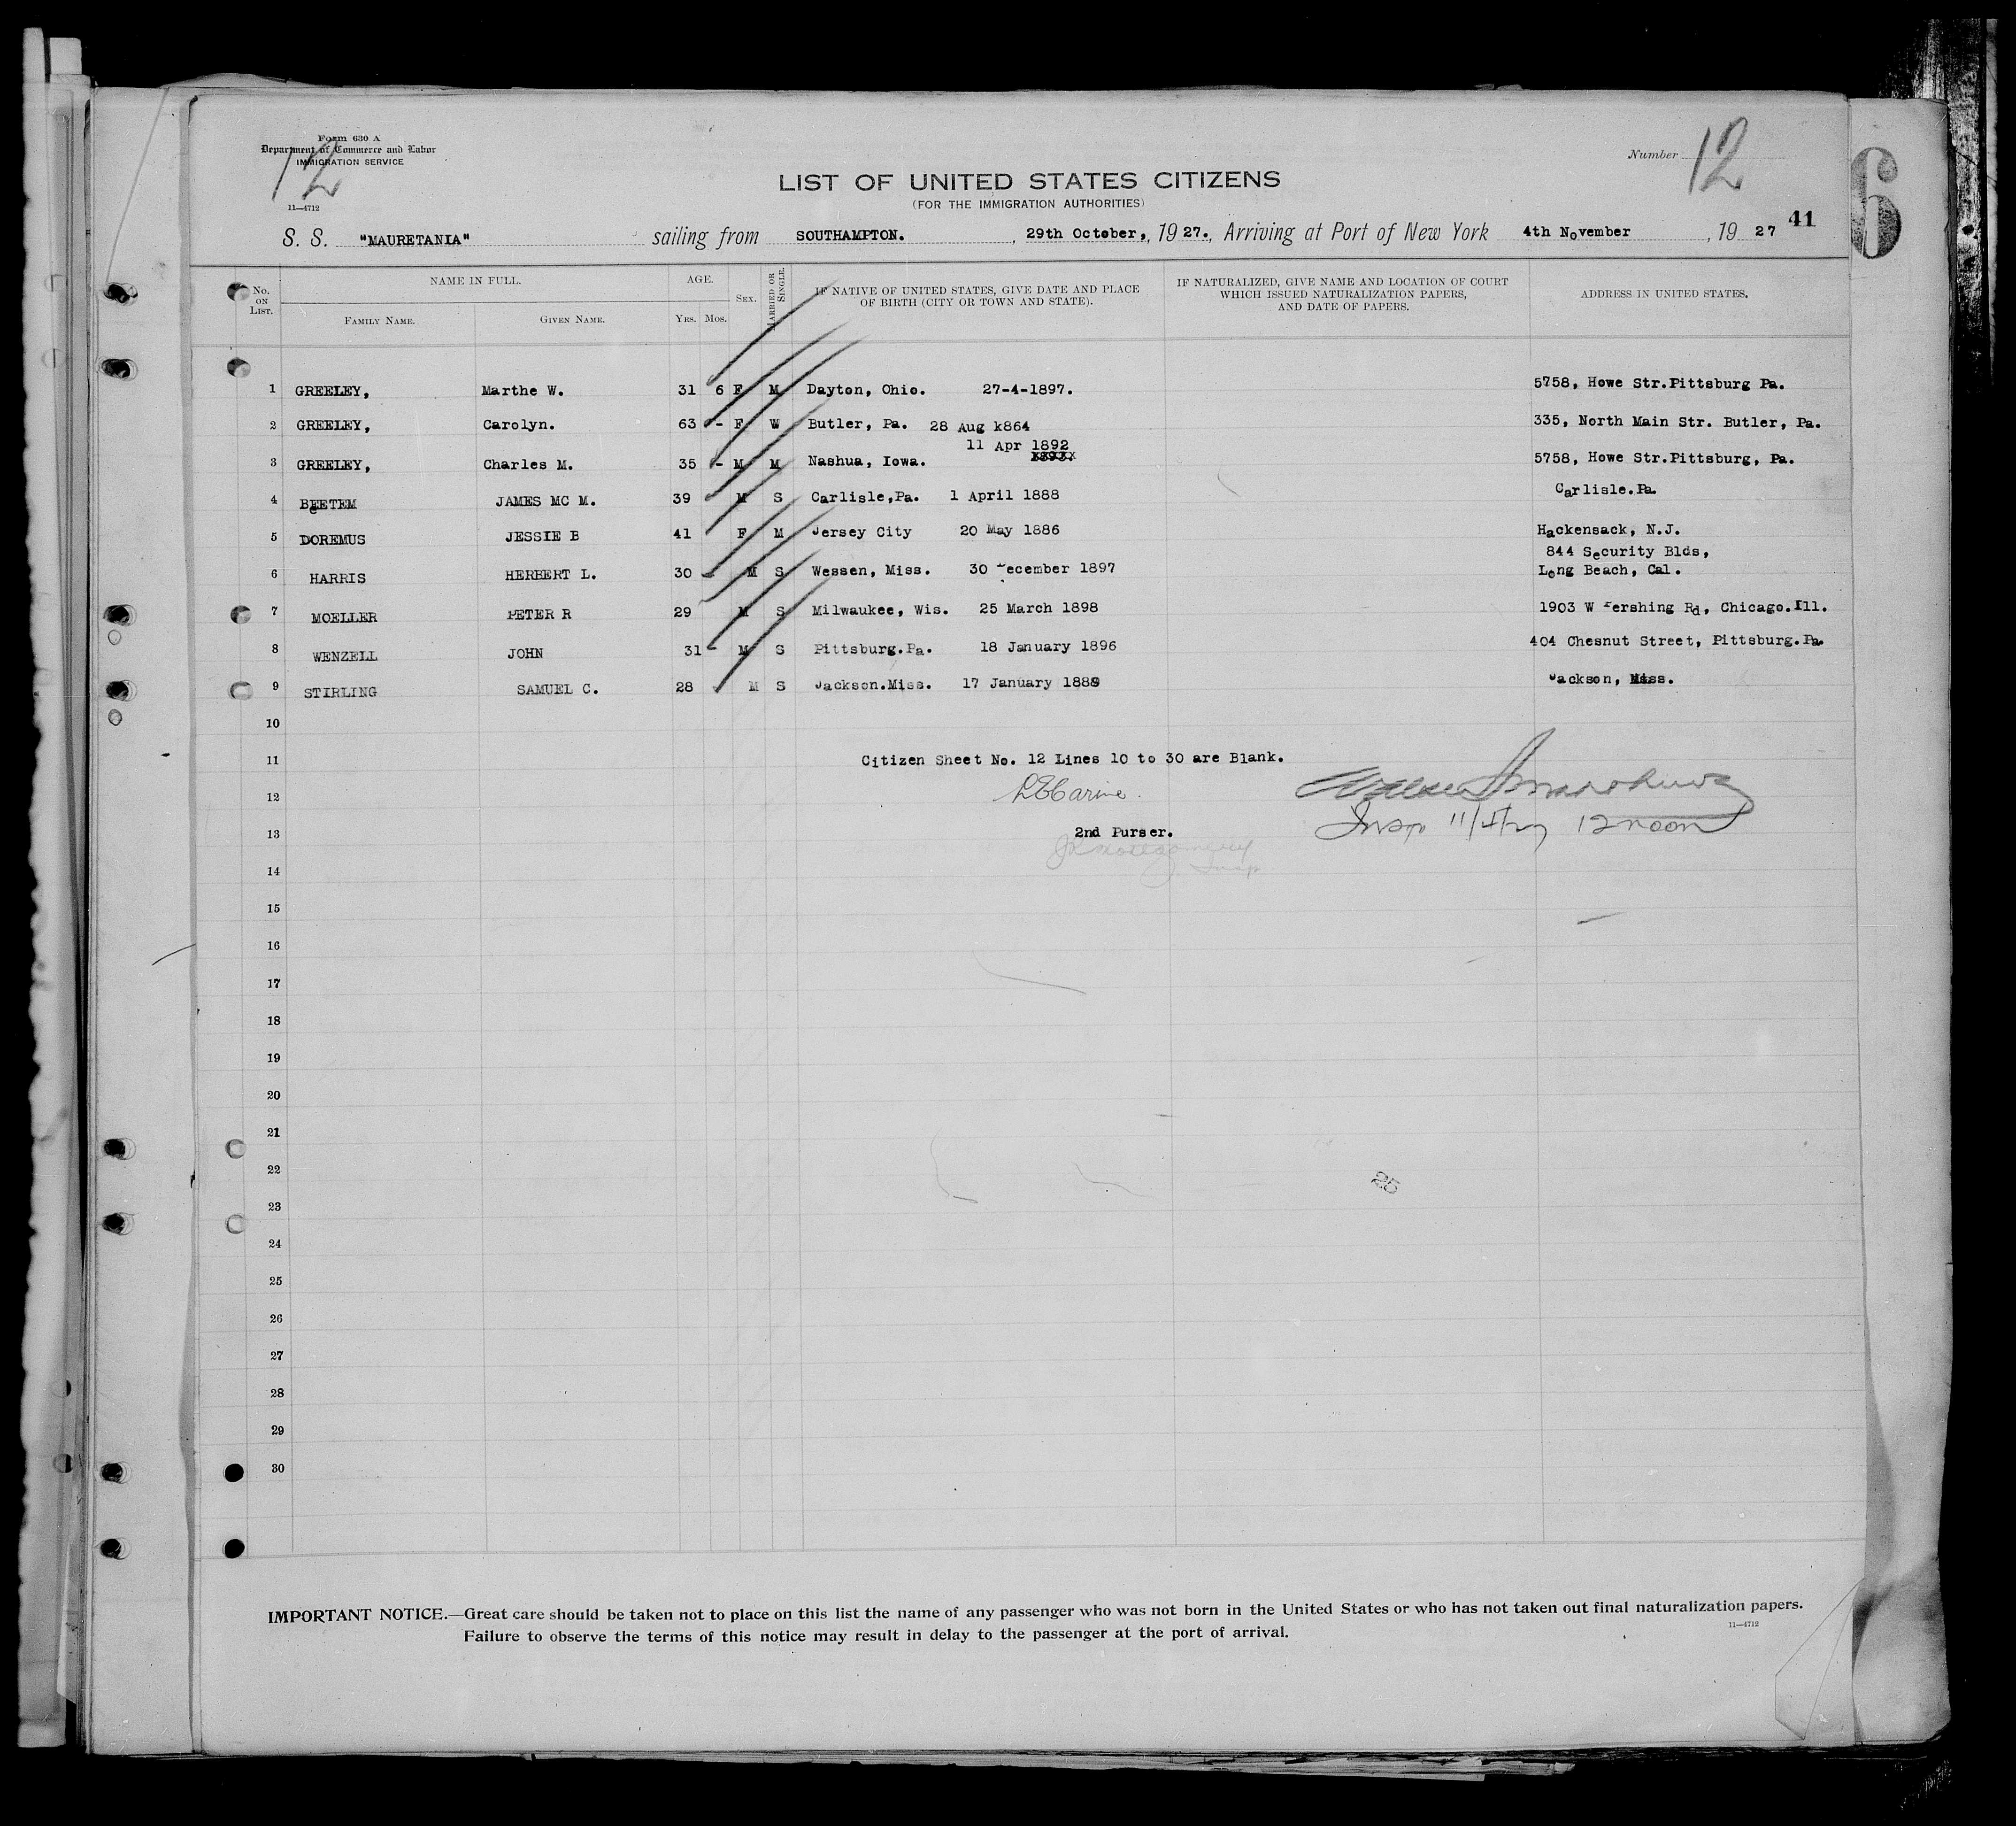 Form 630 A
Department of Commerce and Labor
IMMIGRATION SERVICE
11—4712
12
Number 12
6
41
LIST OF UNITED STATES CITIZENS
(FOR THE IMMIGRATION AUTHORITIES)
S. S. "MAURETANIA" sailing from SOUTHAMPTON. , 29th October, , 1927. , Arriving at Port of New York 4th November , 1927
No. ON LIST. NAME IN FULL. AGE. SEX. MARRIED OR SINGLE. IF NATIVE OF UNITED STATES, GIVE DATE AND PLACE OF BIRTH (CITY OR TOWN AND STATE). IF NATURALIZED, GIVE NAME AND LOCATION OF COURT WHICH ISSUED NATURALIZATION PAPERS, AND DATE OF PAPERS. ADDRESS IN UNITED STATES.
FAMILY NAME. GIVEN NAME. YRS. MOS.
1 GREELEY, Marthe W. 31 6 F M Dayton, Ohio. 27-4-1897. 5758, Howe Str.Pittsburg Pa.
2 GREELEY, Carolyn. 63 - F W Butler, Pa. 28 Aug k864 335, North Main Str. Butler, Pa.
11 Apr 1892
3 GREELEY, Charles M. 35 - M M Nashua, Iowa. 5758, Howe Str.Pittsburg, Pa.
4 BeETEM JAMES MC M. 39 M S Carlisle,Pa. 1 April 1888 Carlisle.Pa.
5 DOREMUS JESSIE B 41 F M Jersey City 20 May 1886 Hackensack, N.J.
844 Security Blds,
6 HARRIS HERBERT L. 30 - M S Wessen, Miss. 30 December 1897 Long Beach, Cal.
7 MOELLER PETER R 29 M S Milwaukee, Wis. 25 March 1898 1903 W Pershing Rd, Chicago.Ill.
8 WENZELL JOHN 31 - M S Pittsburg.Pa. 18 January 1896 404 Chesnut Street, Pittsburg.Pa.
9 STIRLING SAMUEL C. 28 M S Jackson.Miss. 17 January 1889 Jackson, Miss.
10
11 Citizen Sheet No. 12 Lines 10 to 30 are Blank.
12
13 2nd Purser. Insp 11/4/27 12 noon
14 Insp
15
16
17
18
19
20
21
22
25
23
24
25
26
27
28
29
30
IMPORTANT NOTICE.—Great care should be taken not to place on this list the name of any passenger who was not born in the United States or who has not taken out final naturalization papers.
Failure to observe the terms of this notice may result in delay to the passenger at the port of arrival.
11—4712